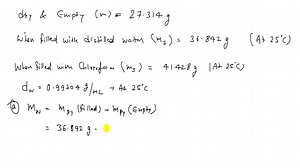 dry & Empty (m) = 27.314 g
When filled with distilled water (m₂) = 36.842 g (At 25°C)
When filled with Chloroform (m₃) = 41.428 g (At 25°C)
d_w = 0.99704 g/mL → At 25°C
(a) M_w = M_py (filled) - M_py (Empty)
= 36.842 g -